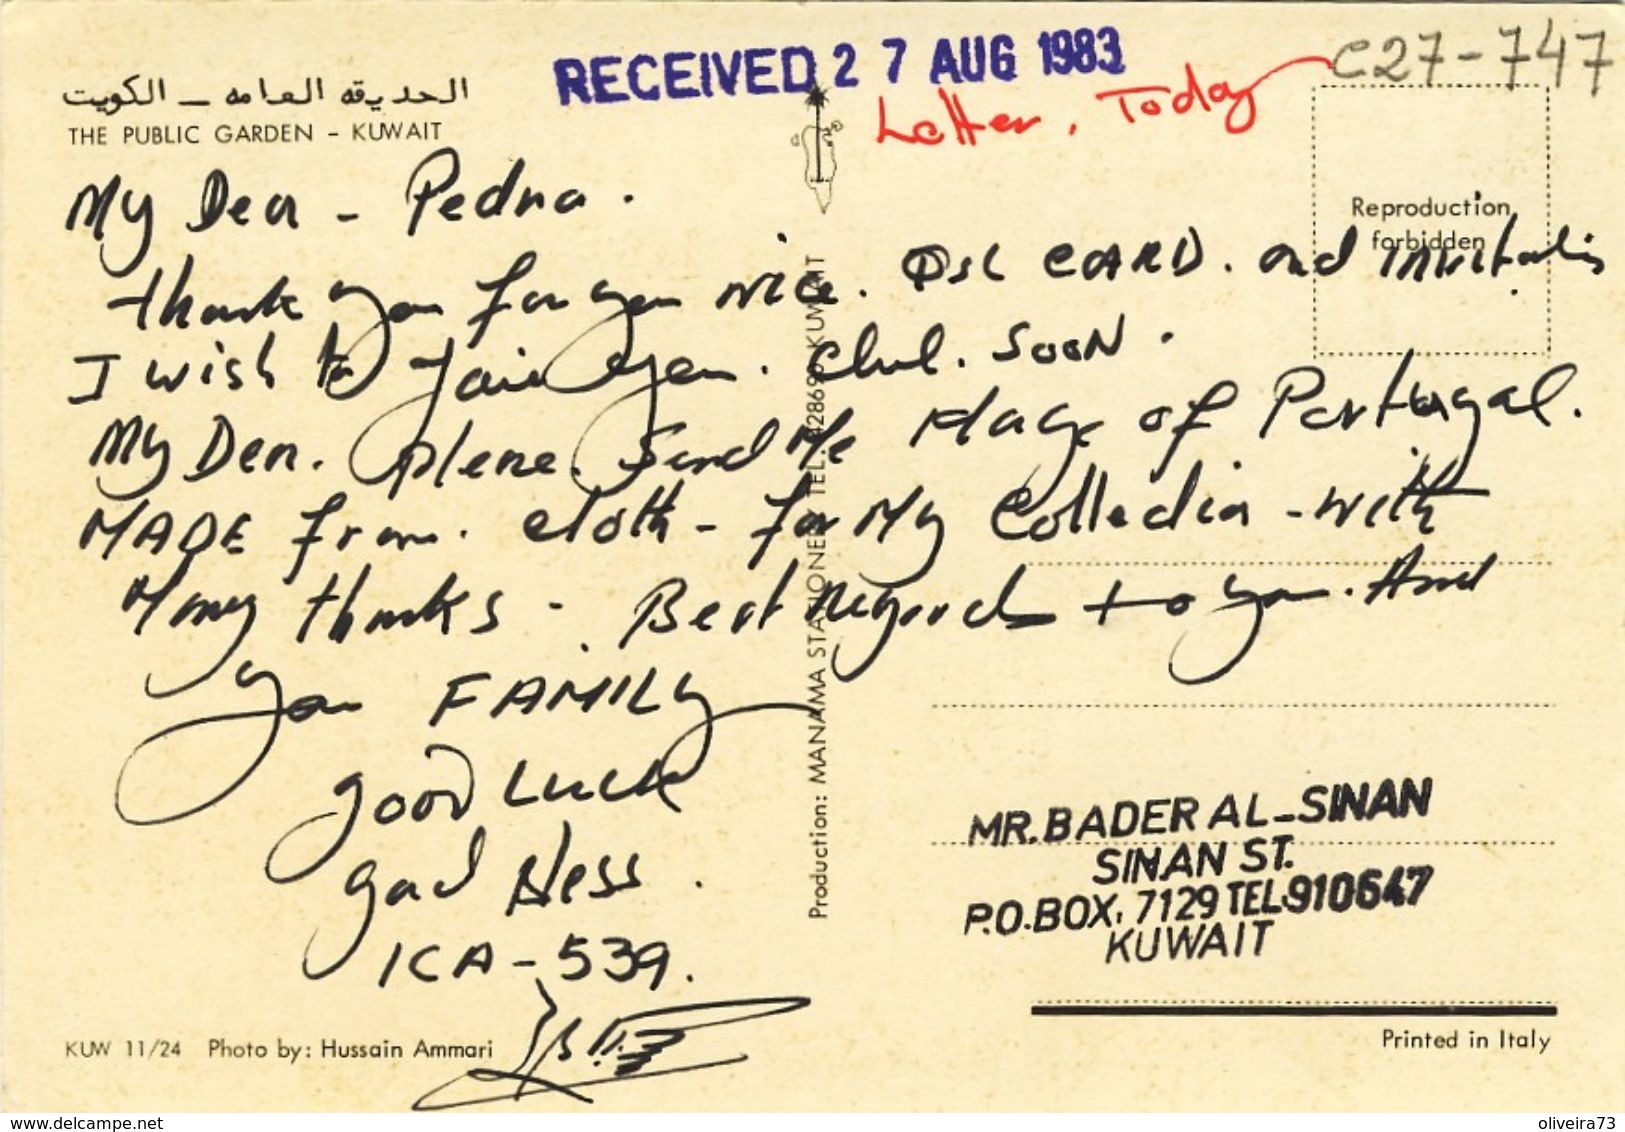 RECEIVED 2 7 AUG 1983
C27-747
Letter. Today
الحديقه العامه — الكويت
THE PUBLIC GARDEN - KUWAIT
Reproduction
forbidden
My Dear - Pedna.
thank you for you nice. QSL CARD. and invitation
I wish to Join you. club. SOON.
My Dear. please. Send Me Flage of Portugal.
MADE from. cloth - for My Collection - with
Many thanks - Best regards to you. And
your FAMILY
good Luck
gad bless.
ICA-539.
Production: MANAMA STATIONERY TEL. 428699 KUWAIT
MR. BADER AL-SINAN
SINAN ST.
P.O.BOX. 7129 TEL.910647
KUWAIT
KUW 11/24 Photo by: Hussain Ammari
Printed in Italy
www.delcampe.net
oliveira73